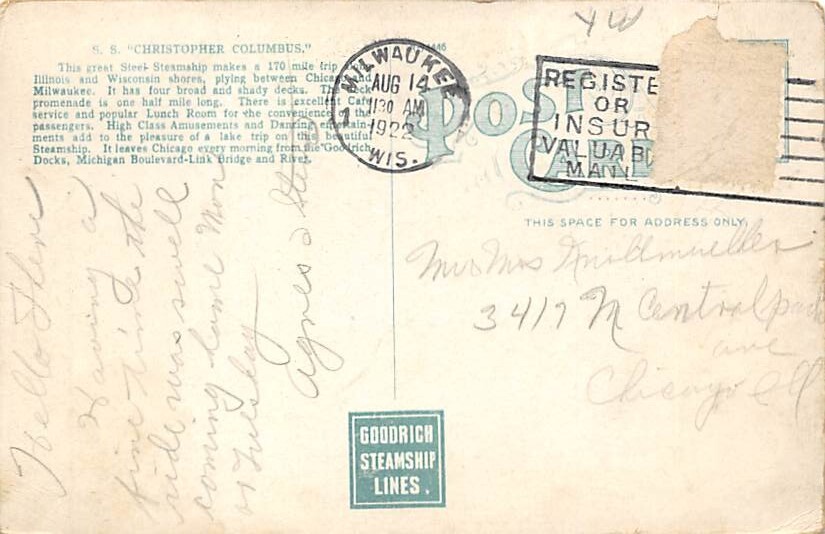 YW
S. S. "CHRISTOPHER COLUMBUS."
This great Steel Steamship makes a 170 mile trip
Illinois and Wisconsin shores, plying between Chicago and
Milwaukee. It has four broad and shady decks. The deck
promenade is one half mile long. There is excellent Cafe
service and popular Lunch Room for the convenience of the
passengers. High Class Amusements and Dancing
ments add to the pleasure of a lake trip on the beautiful
Steamship. It leaves Chicago every morning from the Goodrich
Docks, Michigan Boulevard-Link Bridge and River.
MILWAUKEE
AUG 14
1130 AM
1922
WIS.
POST
CARD
REGISTE
OR
INSUR
VALUAB
MAIL
THIS SPACE FOR ADDRESS ONLY.
Hello There
Having a
fine time the
ride was swell
coming home Mon
or Tuesday
Agnes &
Mr Mrs Knillmueller
3419 N Central park
ave
Chicago Ill
GOODRICH
STEAMSHIP
LINES.